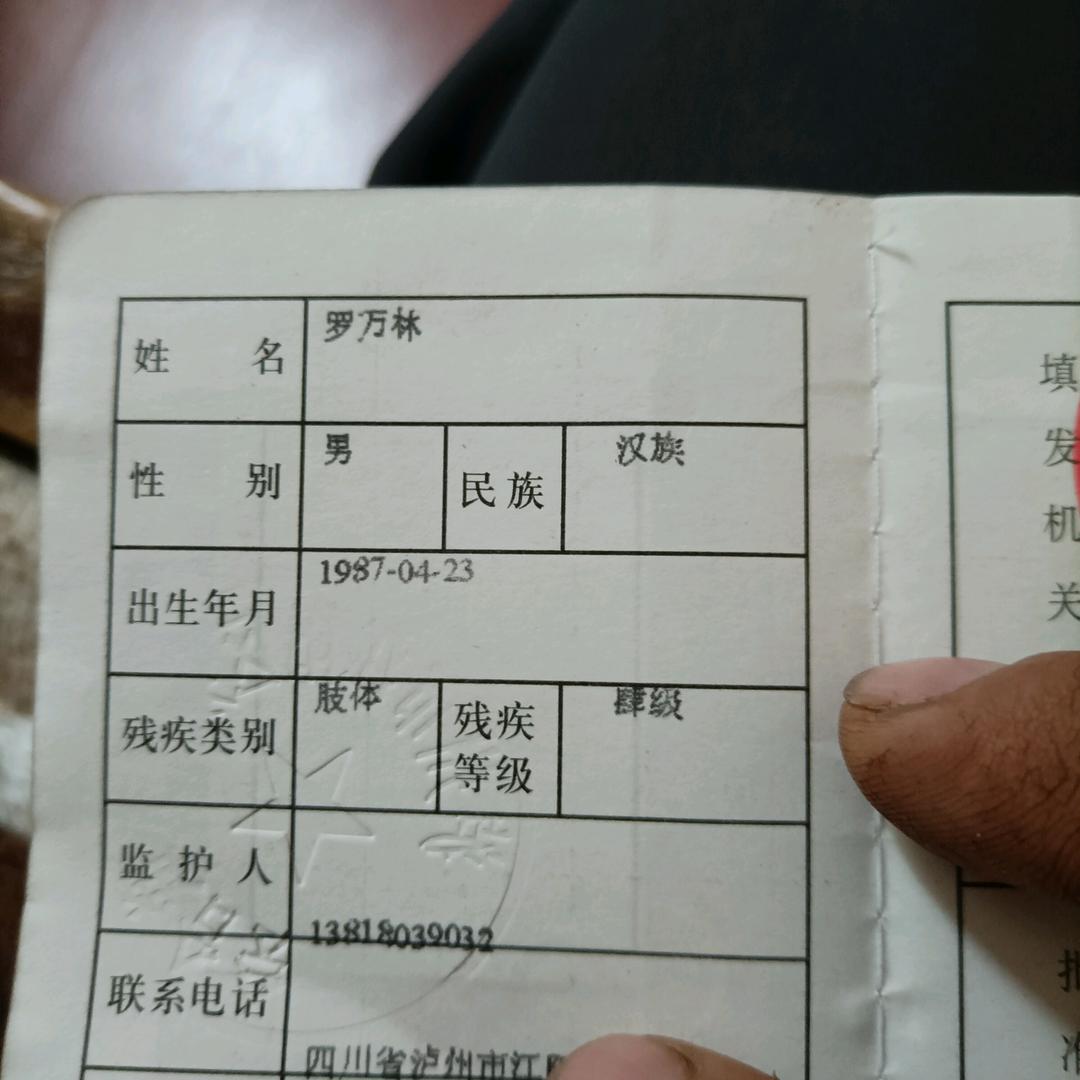 姓名 罗万林
性别 男 民族 汉族
出生年月 1987-04-23
残疾类别 肢体 残疾等级 肆级
监护人
13818039032
联系电话
四川省泸州市江
填
发
机
关
批
准